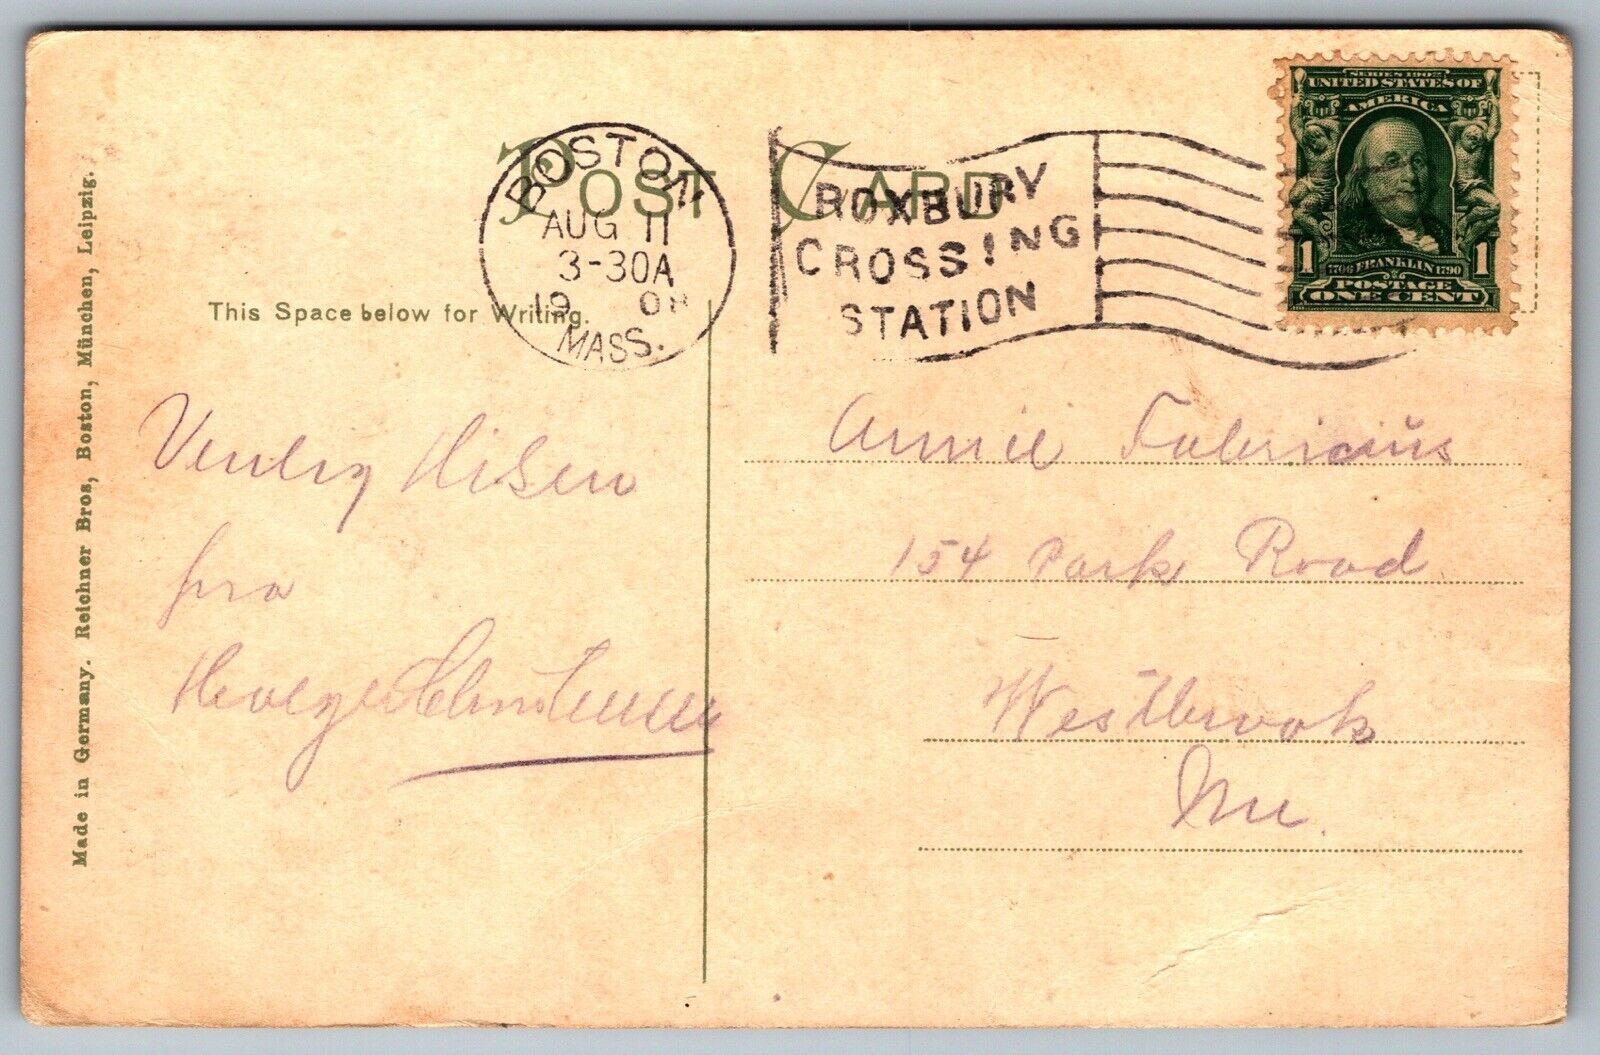 POST CARD
BOSTON
AUG 11
3-30A
19 08
MASS.
ROXBURY
CROSSING
STATION
SERIES 1902
UNITED STATES OF
AMERICA
1 1
1706 FRANKLIN 1790
POSTAGE
ONE CENT
This Space below for Writing.
Venlig Hilsen
fra
Christensen
Annie Fabricius
154 Park Road
Westbrook
Me.
Made in Germany. Reichner Bros, Boston, München, Leipzig.